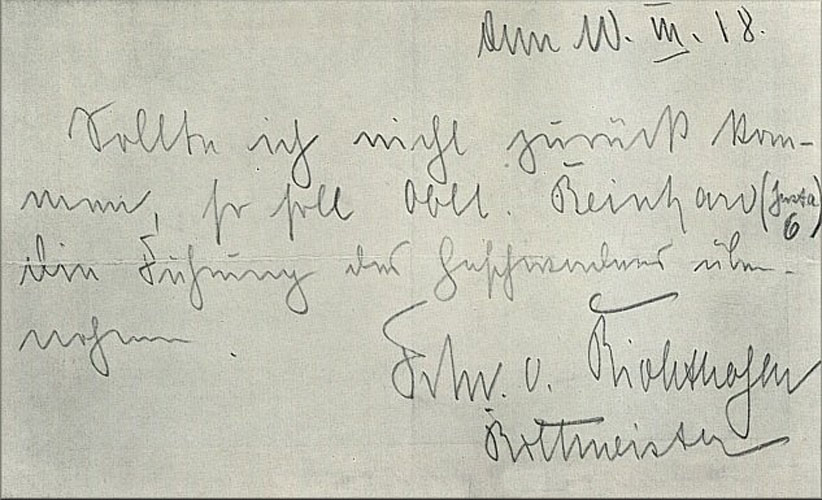 den 10. III. 18.
Sollte ich nicht zurück kom-
men, so soll Oblt. Reinhard (Jasta
6)
die Führung des Geschwaders über-
nehmen.
Frhr. v. Richthofen
Rittmeister